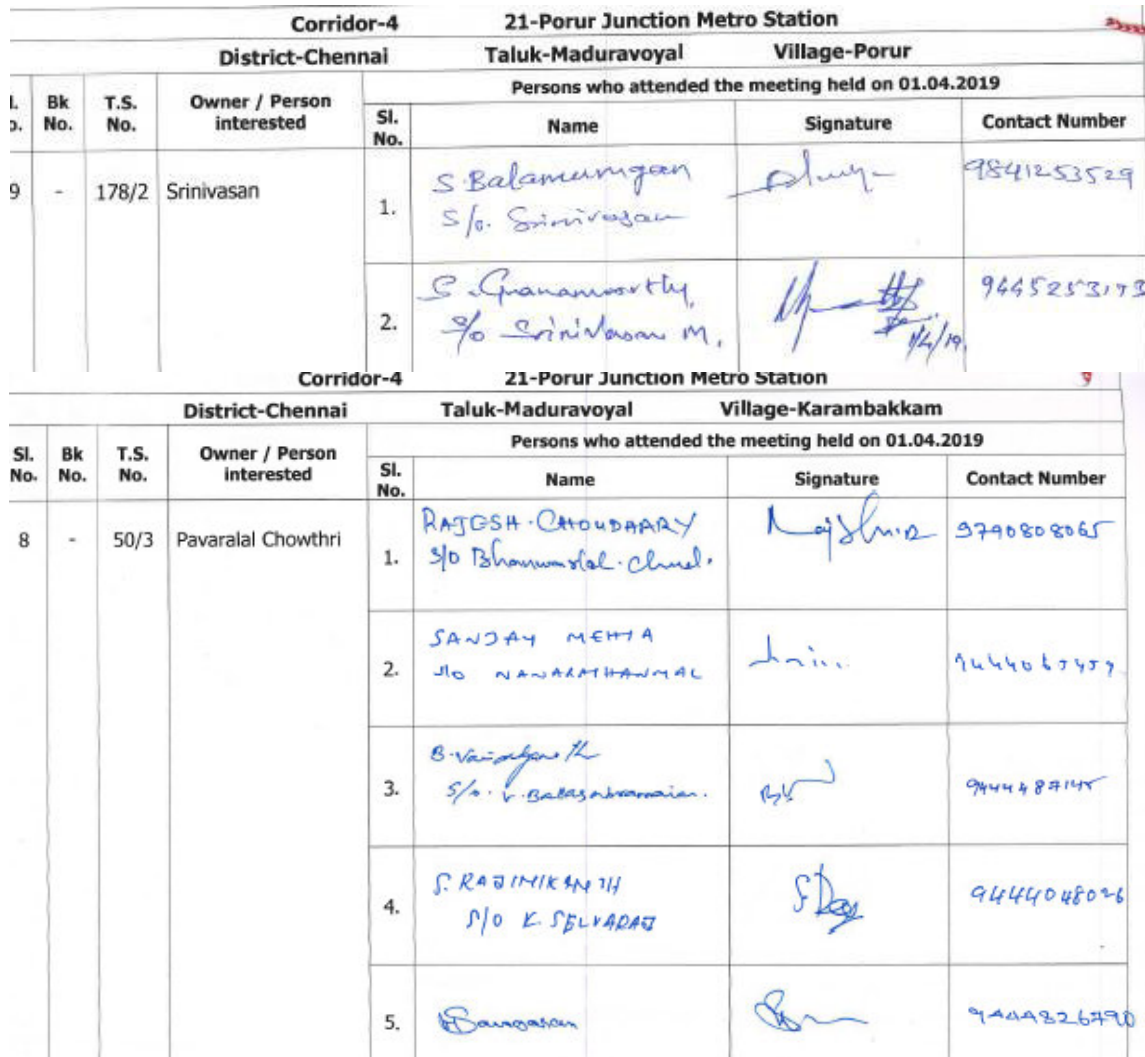 Corridor-4 21-Porur Junction Metro Station
District-Chennai Taluk-Maduravoyal Village-Porur
Persons who attended the meeting held on 01.04.2019
Bk No. T.S. No. Owner / Person interested Sl. No. Name Signature Contact Number
9 - 178/2 Srinivasan
1. S. Balamurugan 9841253529
S/o. Srinivasan
2. S. Gnanamoorthy,
S/o Srinivasan M.
1/4/19.
Corridor-4 21-Porur Junction Metro Station
District-Chennai Taluk-Maduravoyal Village-Karambakkam
Persons who attended the meeting held on 01.04.2019
Sl. No. Bk No. T.S. No. Owner / Person interested Sl. No. Name Signature Contact Number
8 - 50/3 Pavaralal Chowthri
1. RAJESH. CHOUDAARY 9790808065
S/o
2. SANJAY MEHTA
S/o NANARATHANMAL
3. B.
S/o. V. Balasubramaian.
4. S. RAJINIKANTH 9444048026
S/O K. SELVARAJ
5. 9444826790